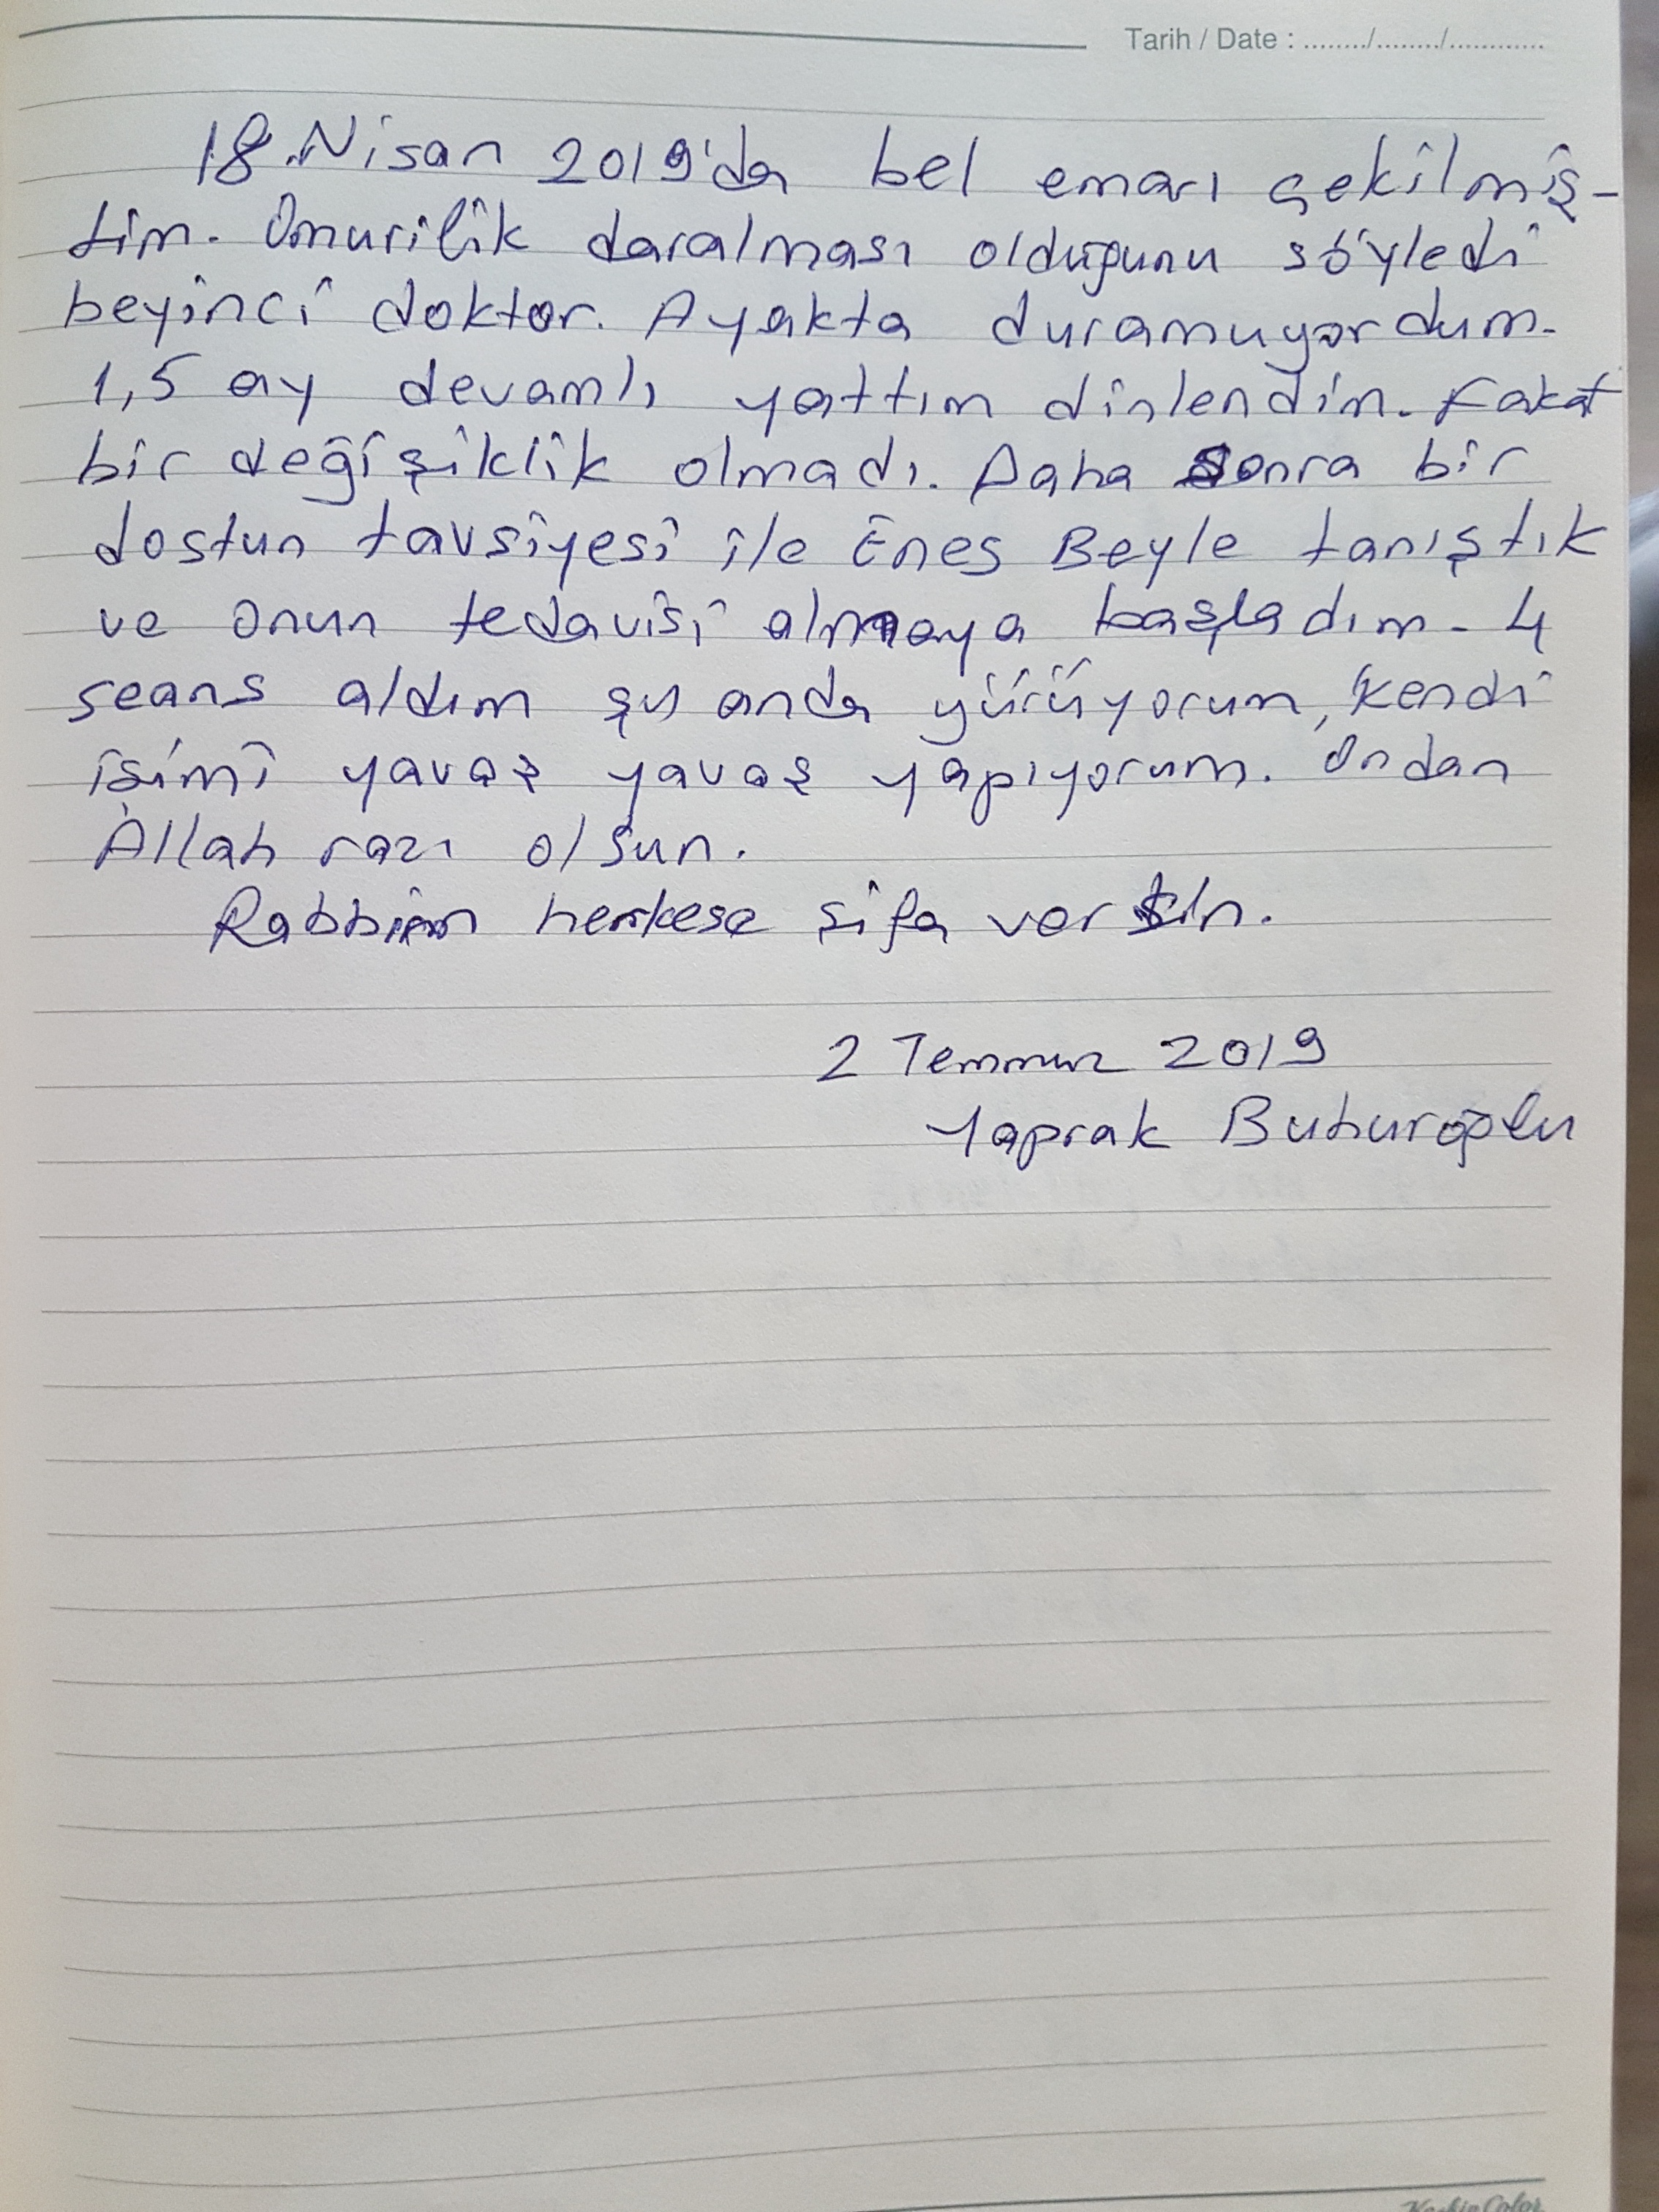 Tarih / Date : ......../......../............
18 Nisan 2019'da bel emarı çekilmiş-
tim. Omurilik daralması olduğunu söyledi
beyinci doktor. Ayakta duramuyordum.
1,5 ay devamlı yattım dinlendim. Fakat
bir değişiklik olmadı. Daha sonra bir
dostun tavsiyesi ile Enes Beyle tanıştık
ve onun tedavisi almaya başladım. 4
seans aldım şu anda yürüyorum, kendi
işimi yavaş yavaş yapıyorum. Ondan
Allah razı olsun.
Rabbim herkese şifa versin.
2 Temmuz 2019
Yaprak Buhuroğlu
Keskin Color